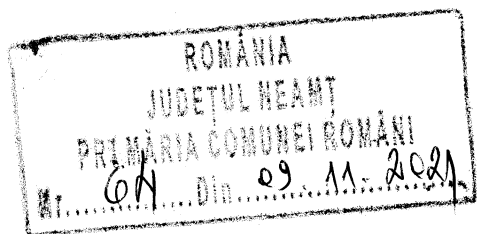 ROMÂNIA
JUDEȚUL NEAMȚ
PRIMĂRIA COMUNEI ROMÂNI
Nr. 64 Din 09.11.2021